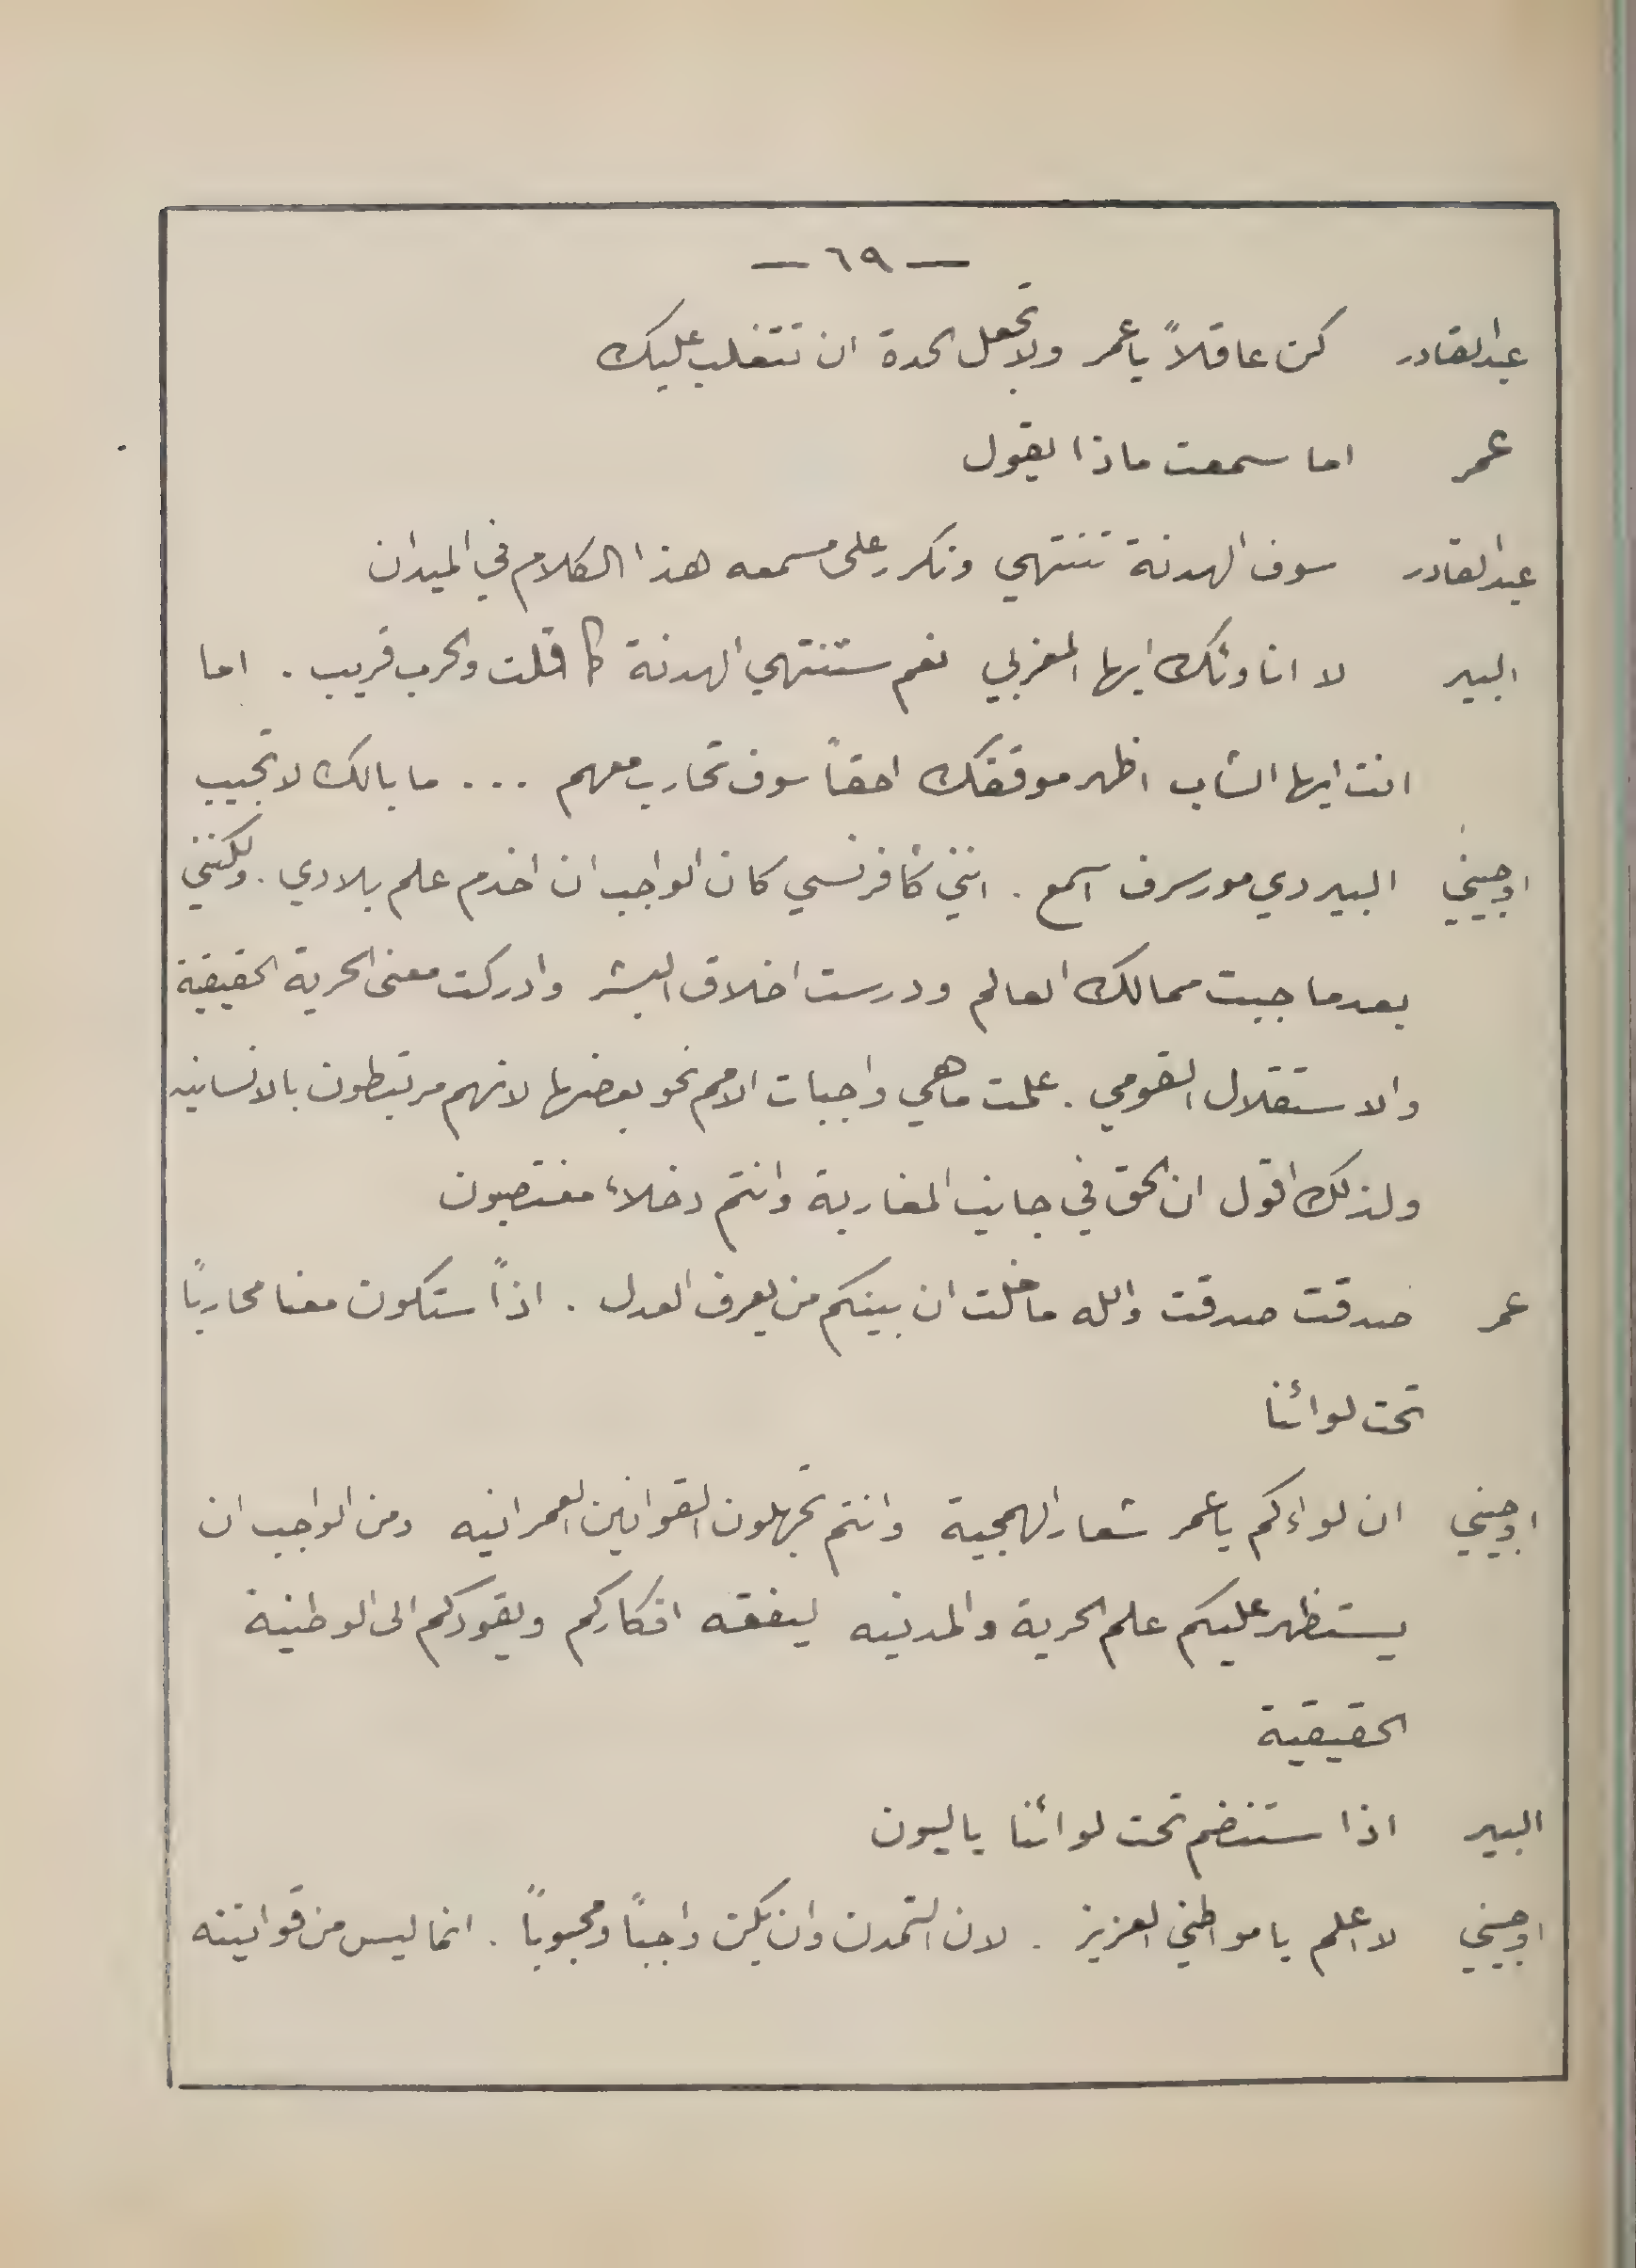 — ٦٩ —
عبدالقادر كن عاقلاً ياعمر ولاتجعل الحدة ان تتغلب عليك
عمر اما سمعت ماذا يقول
عبدالقادر سوف الهدنة تنتهي ونكرر على مسمعه هذا الكلام في الميدان
البير لا انا ولك ايها المغربي نعم ستنتهي الهدنة كما قلت والحرب قريب . اما
انت ايها الشاب اظهر موقفك احقاً سوف تحارب معهم ... ما بالك لا تجيب
اوجيني البير دي مورسرف اسمع . انني كأفرنسي كان الواجب ان اخدم علم بلادي . ولكنني
بعدما جبت ممالك العالم ودرست اخلاق البشر وادركت معنى الحرية الحقيقية
والاستقلال القومي . علمت ماهي واجبات الامم نحو بعضها لانهم مرتبطون بالانسانيه
ولذلك اقول ان الحق في جانب المغاربة وانتم دخلاء مغتصبون
عمر صدقت صدقت والله ما خلت ان بينكم من يعرف العدل . اذاً ستكون معنا محارباً
تحت لوائنا
اوجيني ان لواءكم ياعمر شعار الهمجية وانتم تجهلون القوانين العمرانيه ومن الواجب ان
يستظهر عليكم علم الحرية والمدنيه ليفقه افكاركم ويقودكم الى الوطنية
الحقيقية
البير اذا ستنضم تحت لوائنا ياليون
اوجيني لا اعلم يا مواطني العزيز . لان التمدن وان يكن واجباً ومحبوباً . انما ليس من قوانينه